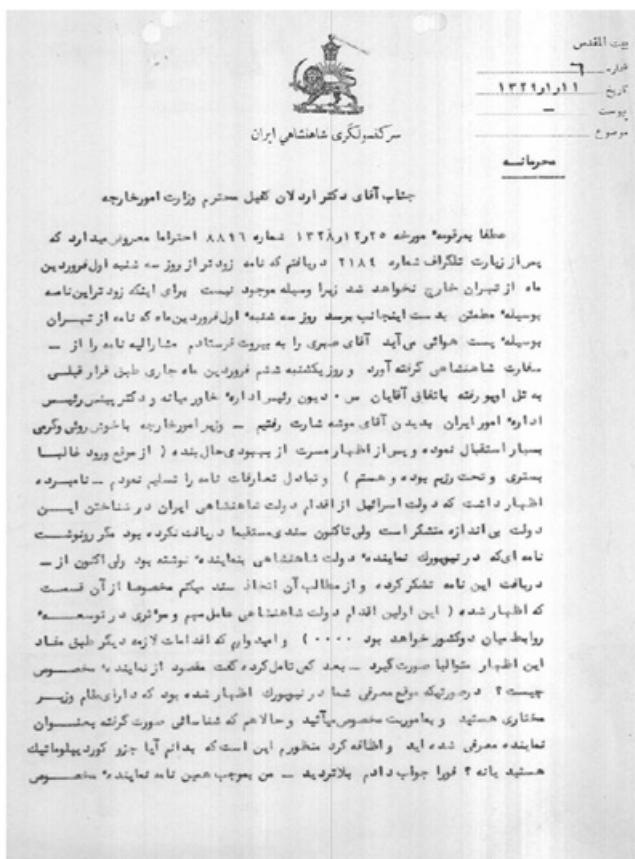 بیت المقدس
شماره ٦
تاریخ ۱۱ر۱ر۱۳۲۹
پیوست —
موضوع
سرکنسولگری شاهنشاهی ایران
محرمانه
جناب آقای دکتر اردلان کفیل محترم وزارت امورخارجه
عطفا بمرقومه مورخه ۲۵ر۱۲ر۱۳۲۸ شماره ۸۸۹٦ احتراما معروض میدارد که
پس از زیارت تلگراف شماره ۲۱۸٤ دریافتم که نامه زودتر از روز سه شنبه اول فروردین
ماه از تهران خارج نخواهد شد زیرا وسیله موجود نیست برای اینکه زودتر این نامه
بوسیله مطمئن بدست اینجانب برسد روز سه شنبه اول فروردین ماه که نامه از تهران
بوسیله پست هوائی می‌آید آقای صبری را به بیروت فرستادم مشارالیه نامه را از —
سفارت شاهنشاهی گرفته آورد و روز یکشنبه ششم فروردین ماه جاری طبق قرار قبلی
به تل اویو رفته باتفاق آقایان س ۰ دیون رئیس اداره خاورمیانه و دکتر پینس رئیس
اداره امور ایران بدیدن آقای موشه شارت رفتیم — وزیر امورخارجه باخوش روئی وگرمی
بسیار استقبال نموده و پس از اظهار مسرت از بهبودی حال بنده ( از موقع ورود غالبا
بستری و تحت رژیم بوده و هستم ) و تبادل تعارفات نامه را تسلیم نمودم — نامبرده
اظهار داشت که دولت اسرائیل از اقدام دولت شاهنشاهی ایران در شناختن این
دولت بی اندازه متشکر است ولی تاکنون سندی مستقیما دریافت نکرده بود مگر رونوشت
نامه ای که در نیویورک نماینده دولت شاهنشاهی بنماینده نوشته بود ولی اکنون از —
دریافت این نامه تشکر کرده و از مطالب آن اتخاذ سند میکنم مخصوصا از آن قسمت
که اظهار شده ( این اولین اقدام دولت شاهنشاهی عامل مهم و موثری در توسعه
روابط میان دوکشور خواهد بود ۰۰۰۰ ) و امیدوارم که اقدامات لازمه دیگر طبق مفاد
این اظهار متوالیا صورت گیرد — بعد کمی تامل کرده گفت مقصود از نماینده مخصوص
چیست ؟ درصورتیکه موقع معرفی شما در نیویورک اظهار شده بود که دارای مقام وزیر
مختاری هستید و بماموریت مخصوص میآئید و حالا هم که شناسائی صورت گرفته بعنوان
نماینده معرفی شده اید و اظافه کرد منظورم این است که بدانم آیا جزو کوردیپلوماتیک
هستید یا نه ؟ فورا جواب دادم بلاتردید — من بموجب همین نامه نماینده مخصوص